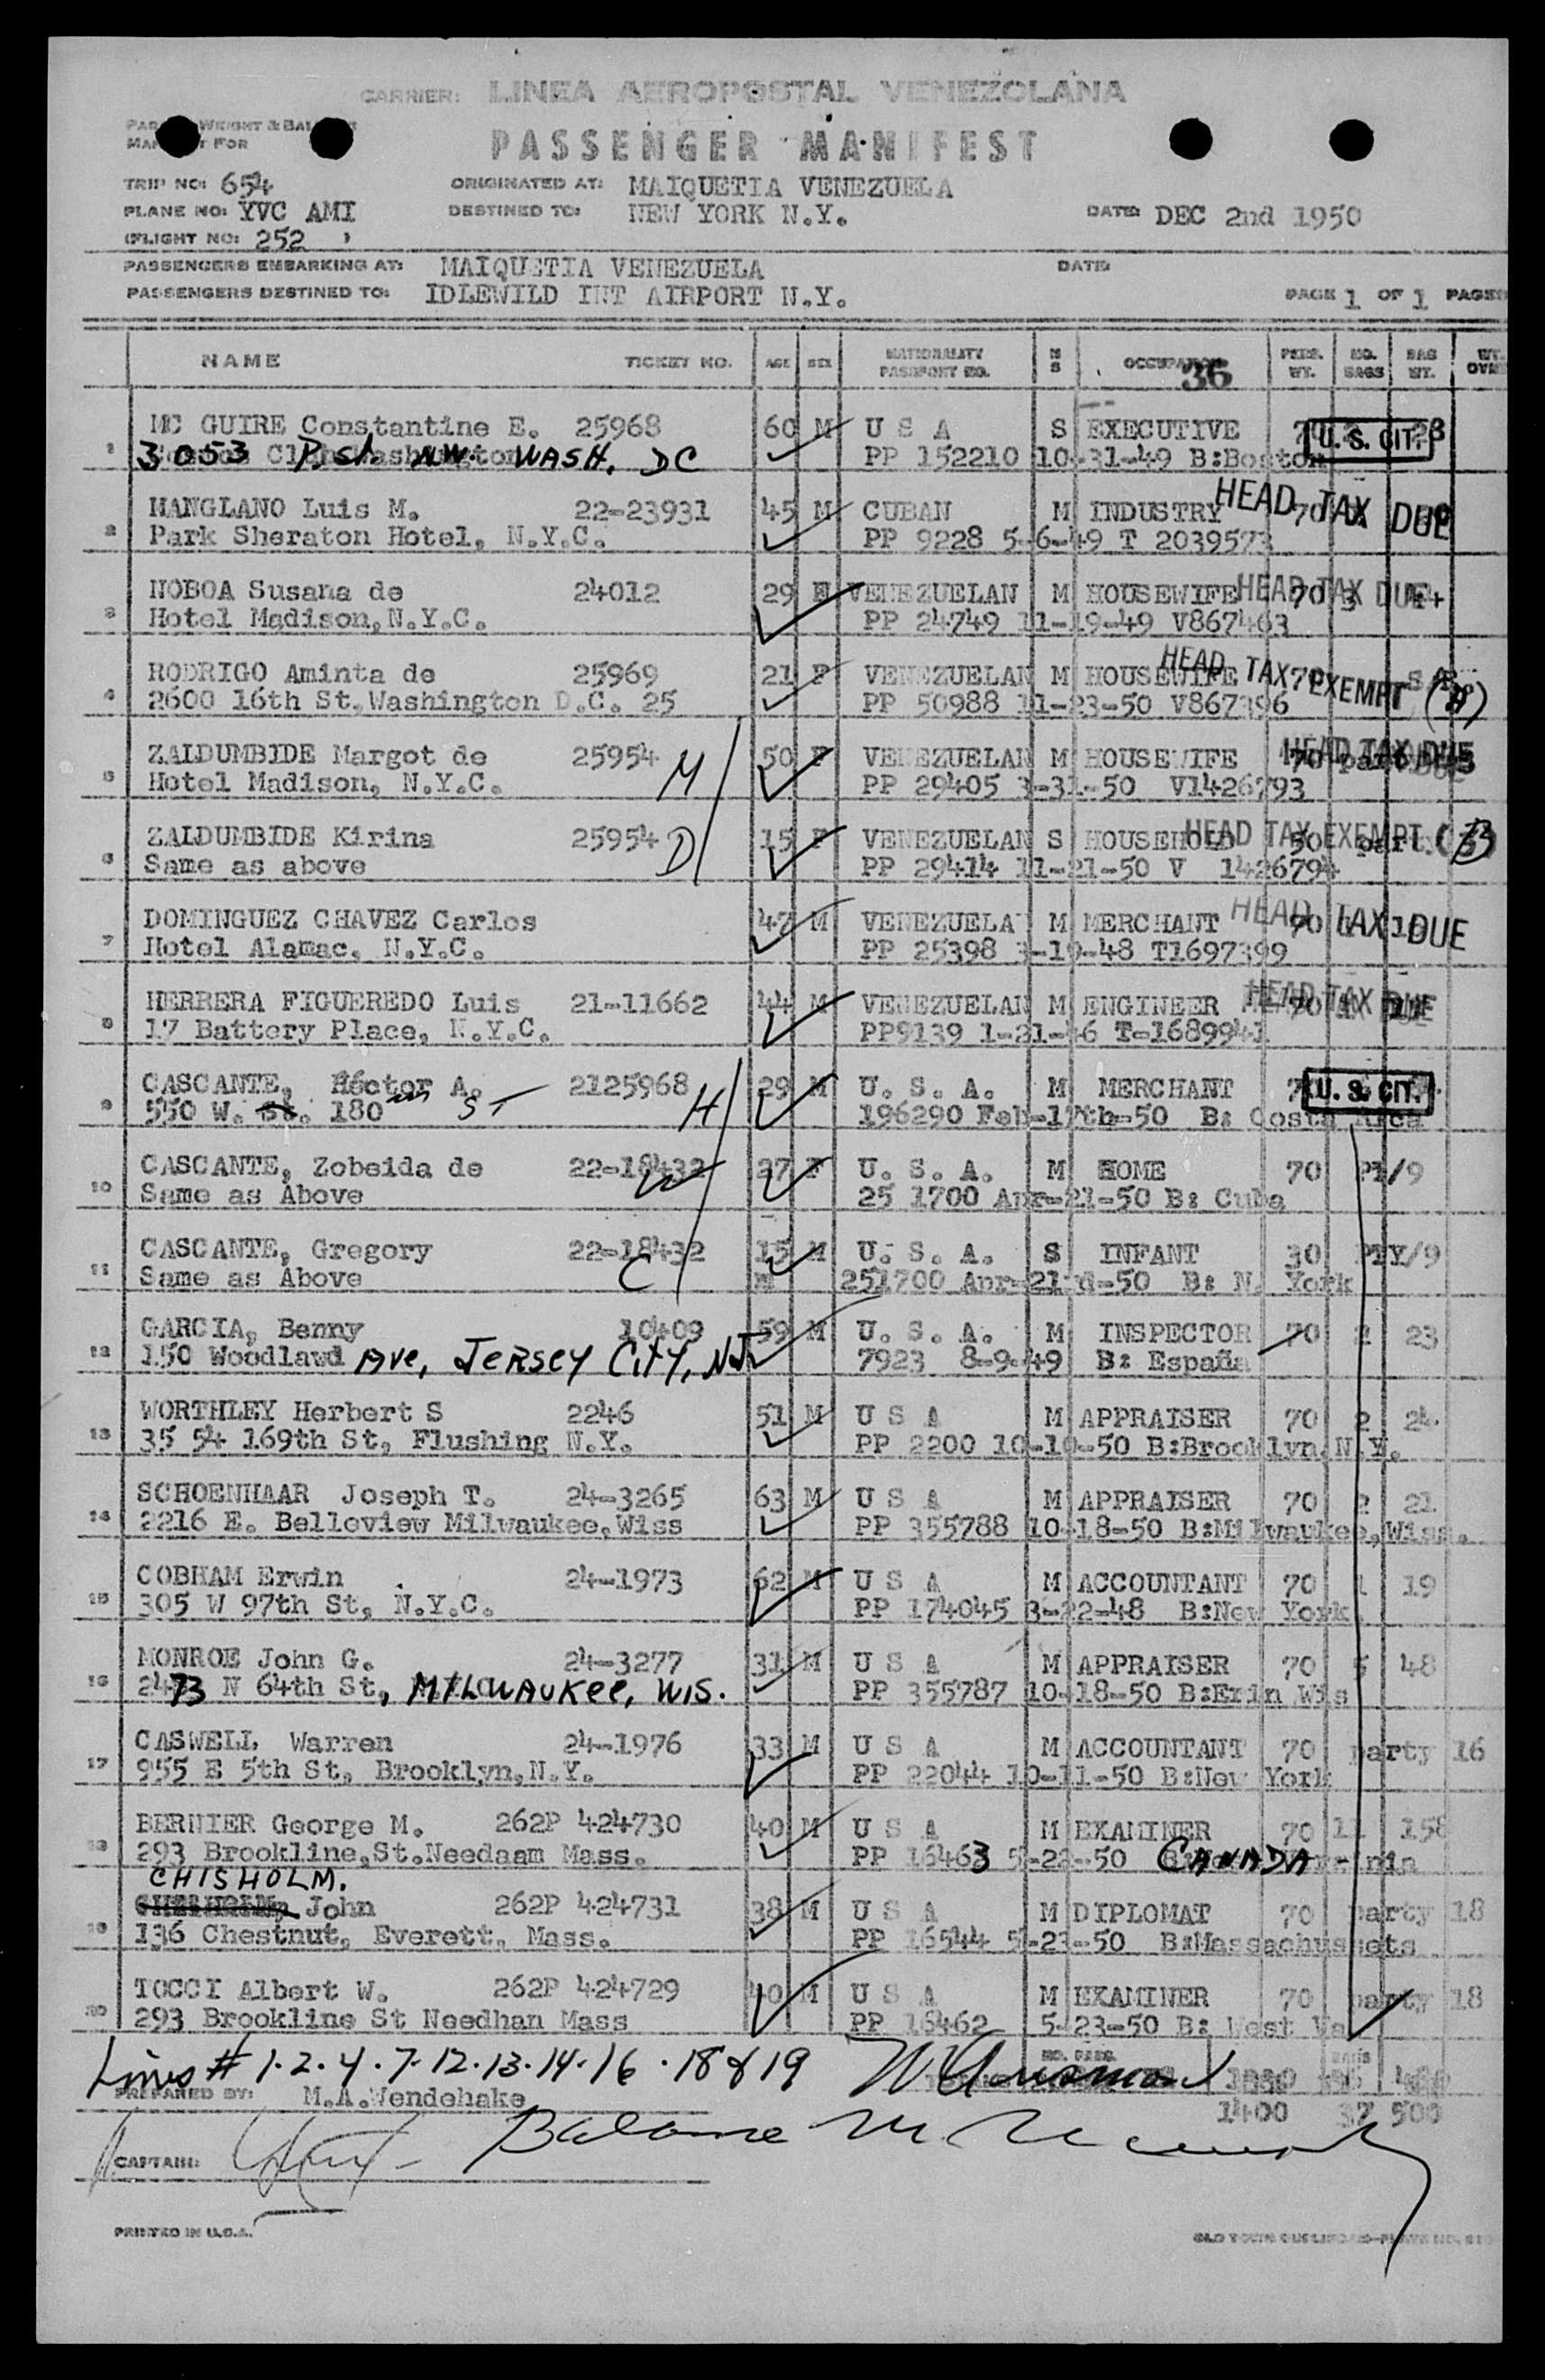 CARRIER: LINEA AEROPOSTAL VENEZOLANA
WEIGHT &
FOR
PASSENGER MANIFEST
TRIP NO: 654 ORIGINATED AT: MAIQUETIA VENEZUELA
PLANE NO: YVC AMI DESTINED TO: NEW YORK N.Y. DATE: DEC 2nd 1950
(FLIGHT NO: 252 )
PASSENGERS EMBARKING AT: MAIQUETIA VENEZUELA DATE:
PASSENGERS DESTINED TO: IDLEWILD INT AIRPORT N.Y. PAGE 1 OF 1 PAGES
NAME TICKET NO. AGE SEX NATIONALITY PASSPORT NO. M S OCCUPATION 36 PSGR. WT. NO. BAGS BAG WT. WT.
1 MC GUIRE Constantine E. 25968 60 M U S A S EXECUTIVE U. S. CIT.
3053 P. St. NW. WASH. DC PP 152210 10-31-49 B:Boston
2 MANGLANO Luis M. 22-23931 45 M CUBAN M INDUSTRY 70 HEAD TAX DUE
Park Sheraton Hotel, N.Y.C. PP 9228 5-6-49 T 2039573
3 NOBOA Susana de 24012 29 F VENEZUELAN M HOUSEWIFE 70 3 HEAD TAX DUE
Hotel Madison, N.Y.C. PP 24749 11-19-49 V867463
4 RODRIGO Aminta de 25969 21 F VENEZUELAN M HOUSEWIFE 70 HEAD TAX EXEMPT
2600 16th St, Washington D.C. 25 PP 50988 11-23-50 V867396
5 ZALDUMBIDE Margot de 25954 M 50 F VENEZUELAN M HOUSEWIFE 70 HEAD TAX DUE
Hotel Madison, N.Y.C. PP 29405 3-31-50 V1426793
6 ZALDUMBIDE Kirina 25954 D 15 F VENEZUELAN S HOUSEHOLD 50 part. HEAD TAX EXEMPT (B)
Same as above PP 29414 11-21-50 V 1426794
7 DOMINGUEZ CHAVEZ Carlos 47 M VENEZUELA M MERCHANT HEAD TAX DUE
Hotel Alamac, N.Y.C. PP 25398 3-19-48 T1697399
8 HERRERA FIGUEREDO Luis 21-11662 44 M VENEZUELAN M ENGINEER 70 HEAD TAX DUE
17 Battery Place, N.Y.C. PP9139 1-21-46 T-1689941
9 CASCANTE, Héctor A. 2125968 H 29 M U. S. A. M MERCHANT U. S. CIT.
550 W. St. 180 ST 196290 Feb-17th-50 B: Costa Rica
10 CASCANTE, Zobeida de 22-18432 W 27 F U. S. A. M HOME 70 PT/9
Same as Above 25 1700 Apr-21-50 B: Cuba
11 CASCANTE, Gregory 22-18432 15 M U. S. A. S INFANT 30 PTY/9
Same as Above C M 251700 Apr-21-d-50 B: N. York
12 GARCIA, Benny 10409 59 M U. S. A. M INSPECTOR 70 2 23
150 Woodlawd Ave, JERSEY CITY, NJ 7923 8-9-49 B: España
13 WORTHLEY Herbert S 2246 51 M U S A M APPRAISER 70 2 24
35 54 169th St, Flushing N.Y. PP 2200 10-10-50 B:Brooklyn N.Y.
14 SCHOENHAAR Joseph T. 24-3265 63 M U S A M APPRAISER 70 2 21
2216 E. Belleview Milwaukee, Wiss PP 355788 10-18-50 B:Milwaukee, Wiss.
15 COBHAM Erwin 24-1973 62 M U S A M ACCOUNTANT 70 1 19
305 W 97th St, N.Y.C. PP 174045 3-22-48 B:New York
16 MONROE John G. 24-3277 31 M U S A M APPRAISER 70 5 48
2473 N 64th St, MILWAUKEE, WIS. PP 355787 10-18-50 B:Erin Wis
17 CASWELL Warren 24-1976 33 M U S A M ACCOUNTANT 70 party 16
955 E 5th St, Brooklyn, N.Y. PP 22044 10-11-50 B:New York
18 BERNIER George M. 262P 424730 40 M U S A M EXAMINER 70 11 158
293 Brookline, St. Needaam Mass. PP 16463 5-22-50 CANADA
CHISHOLM.
19 John 262P 424731 38 M U S A M DIPLOMAT 70 party 18
136 Chestnut, Everett, Mass. PP 16544 5-23-50 B:Massachussets
20 TOCCI Albert W. 262P 424729 40 M U S A M EXAMINER 70 party 18
293 Brookline St Needhan Mass PP 16462 5-23-50 B: West Va
Lines # 1-2-4-7-12-13-14-16-18 & 19
NO. PSGR. BAGS
PREPARED BY: M.A.Wendehake 1400 37 500
CAPTAIN:
PRINTED IN U.S.A.